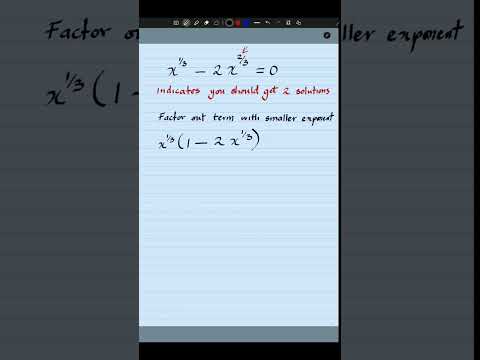 Factor out term with smaller exponent
x^{1/3} − 2x^{2/3} = 0
indicates you should get 2 solutions
Factor out term with smaller exponent
x^{1/3}(1 − 2x^{1/3})